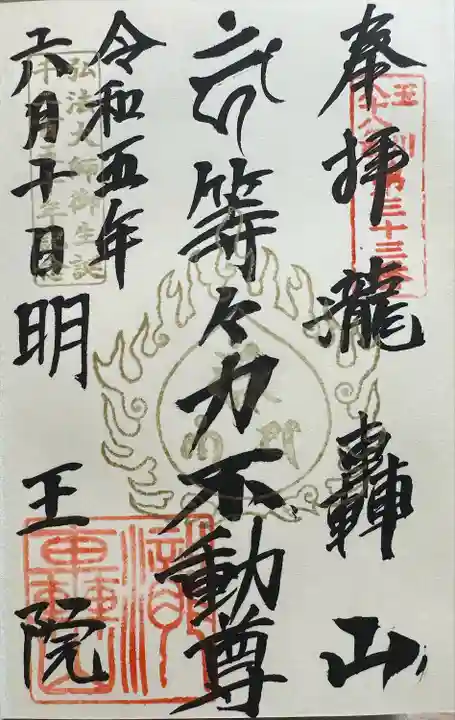 奉拝 瀧轟山
等々力不動尊
令和五年
六月十日
明王院
弘法大師御生誕
第三十三番